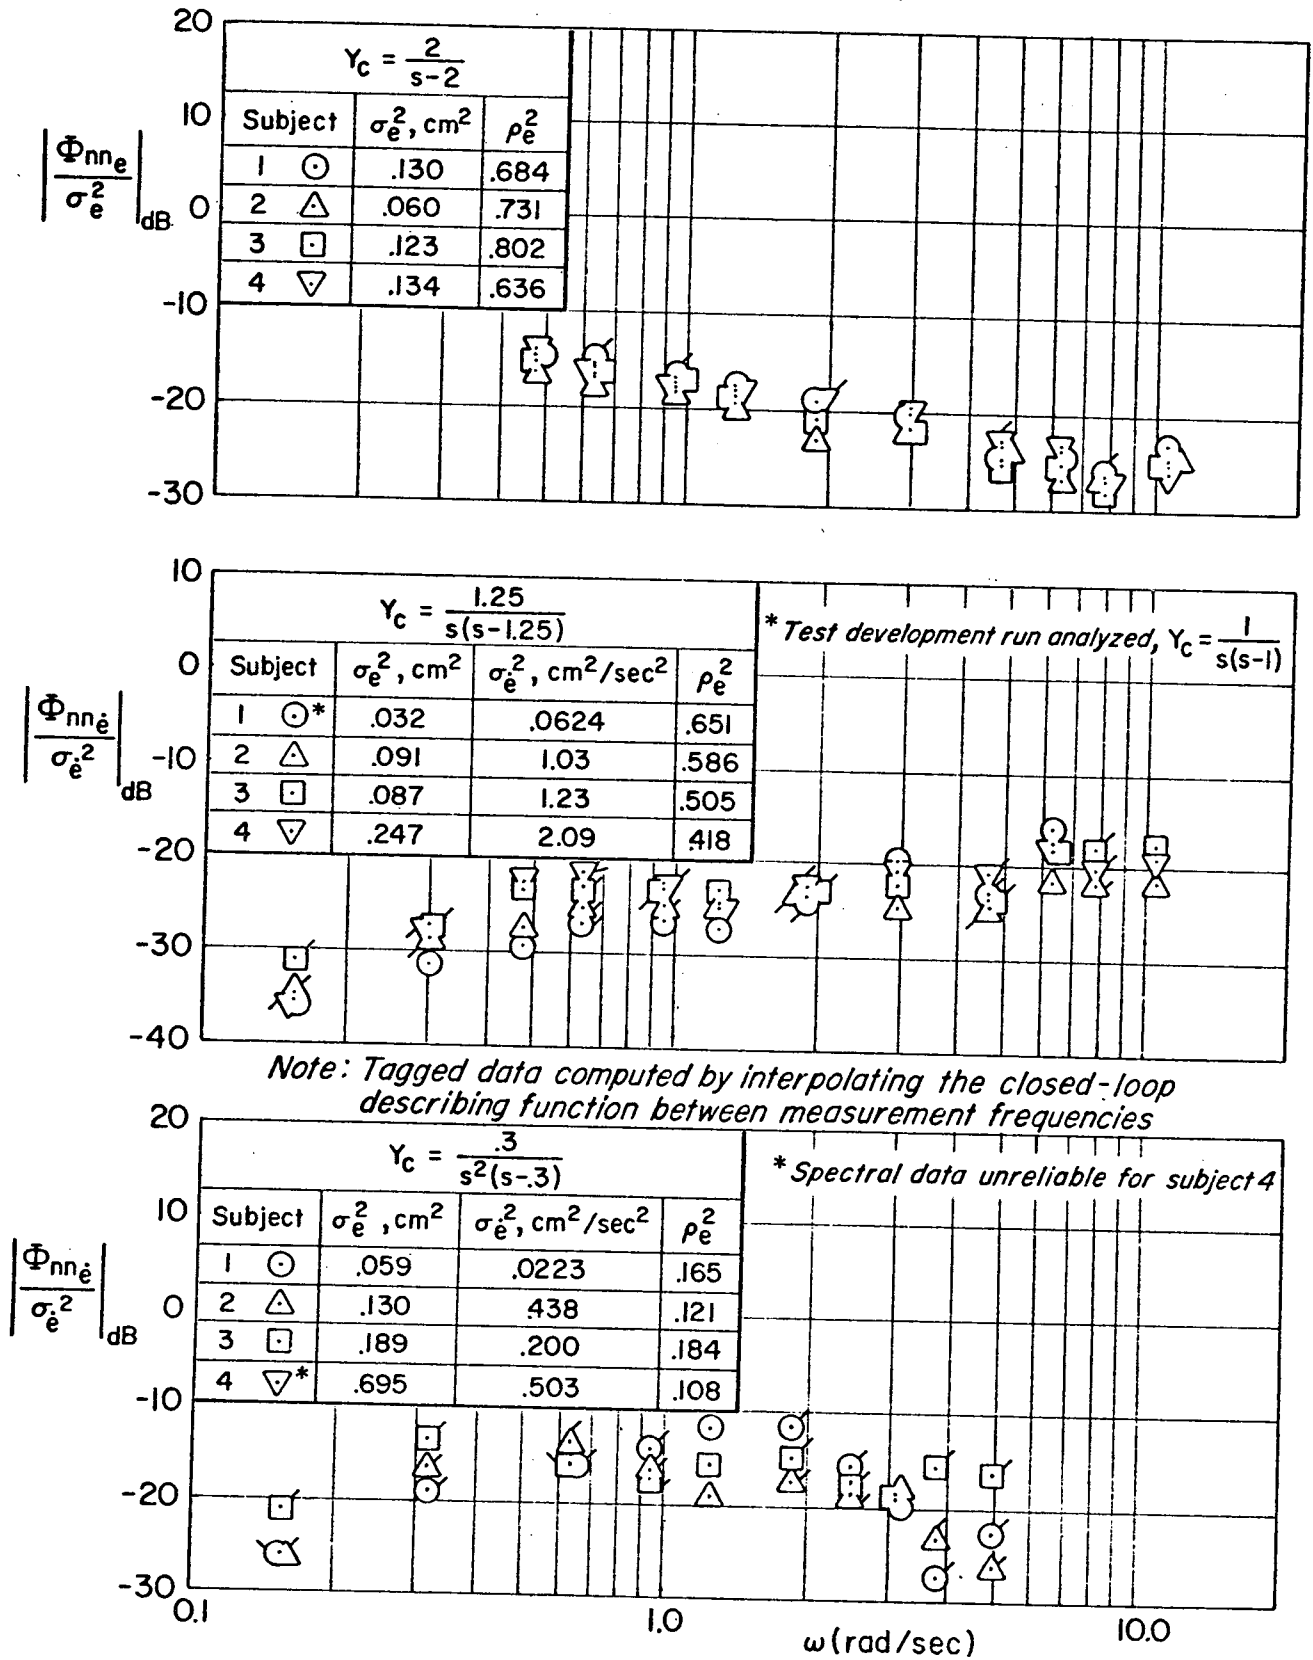 20
10
0
-10
-20
-30
|Φnn_e / σ_e²|dB
Y_c = 2/(s-2)
Subject σ_e², cm² ρ_e²
1 ⊙ .130 .684
2 △ .060 .731
3 ⊡ .123 .802
4 ▽ .134 .636
10
0
-10
-20
-30
-40
|Φnn_ė / σ_ė²|dB
Y_c = 1.25/(s(s-1.25))
Subject σ_e², cm² σ_ė², cm²/sec² ρ_e²
1 ⊙* .032 .0624 .651
2 △ .091 1.03 .586
3 ⊡ .087 1.23 .505
4 ▽ .247 2.09 .418
* Test development run analyzed, Y_c = 1/(s(s-1))
Note: Tagged data computed by interpolating the closed-loop
describing function between measurement frequencies
20
10
0
-10
-20
-30
|Φnn_ė / σ_ė²|dB
Y_c = .3/(s²(s-.3))
Subject σ_e², cm² σ_ė², cm²/sec² ρ_e²
1 ⊙ .059 .0223 .165
2 △ .130 .438 .121
3 ⊡ .189 .200 .184
4 ▽* .695 .503 .108
* Spectral data unreliable for subject 4
0.1 1.0 10.0
ω (rad/sec)